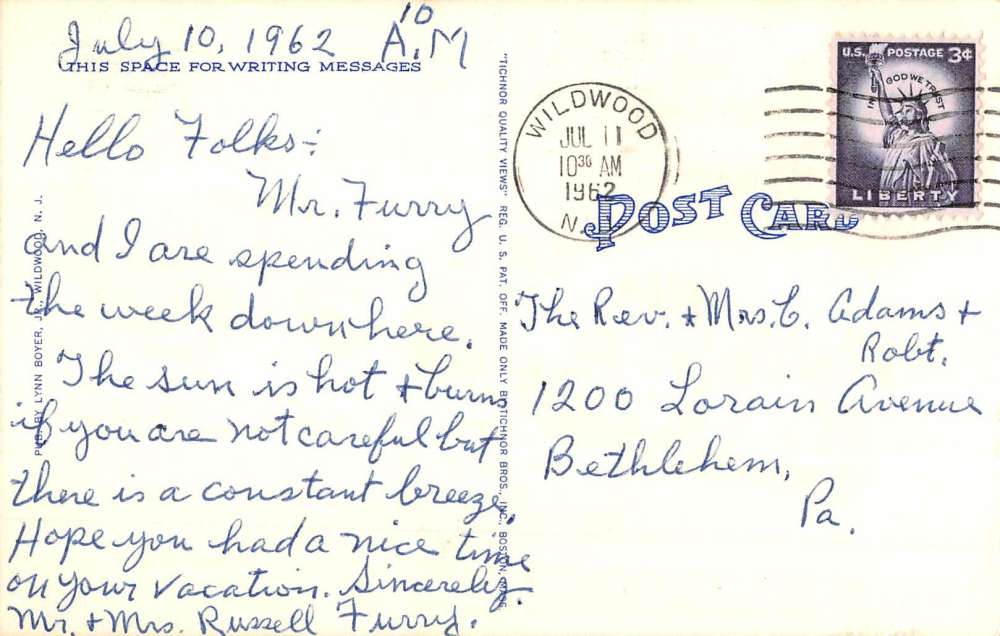 July 10, 1962 10 A.M
THIS SPACE FOR WRITING MESSAGES
Hello Folks:
Mr. Furry
and I are spending
the week down here.
The sun is hot & burns
if you are not careful but
there is a constant breeze.
Hope you had a nice time
on your vacation. Sincerely,
Mr. & Mrs. Russell Furry.
PUB. BY LYNN BOYER, JR., WILDWOOD, N. J.
"TICHNOR QUALITY VIEWS" REG. U. S. PAT. OFF. MADE ONLY BY TICHNOR BROS., INC., BOSTON, MASS.
WILDWOOD
JUL 11
10 30 AM
1962
N.
U.S. POSTAGE 3¢
IN GOD WE TRUST
LIBERTY
POST CARD
The Rev. & Mrs. C. Adams &
Robt.
1200 Lorain Avenue
Bethlehem,
Pa.